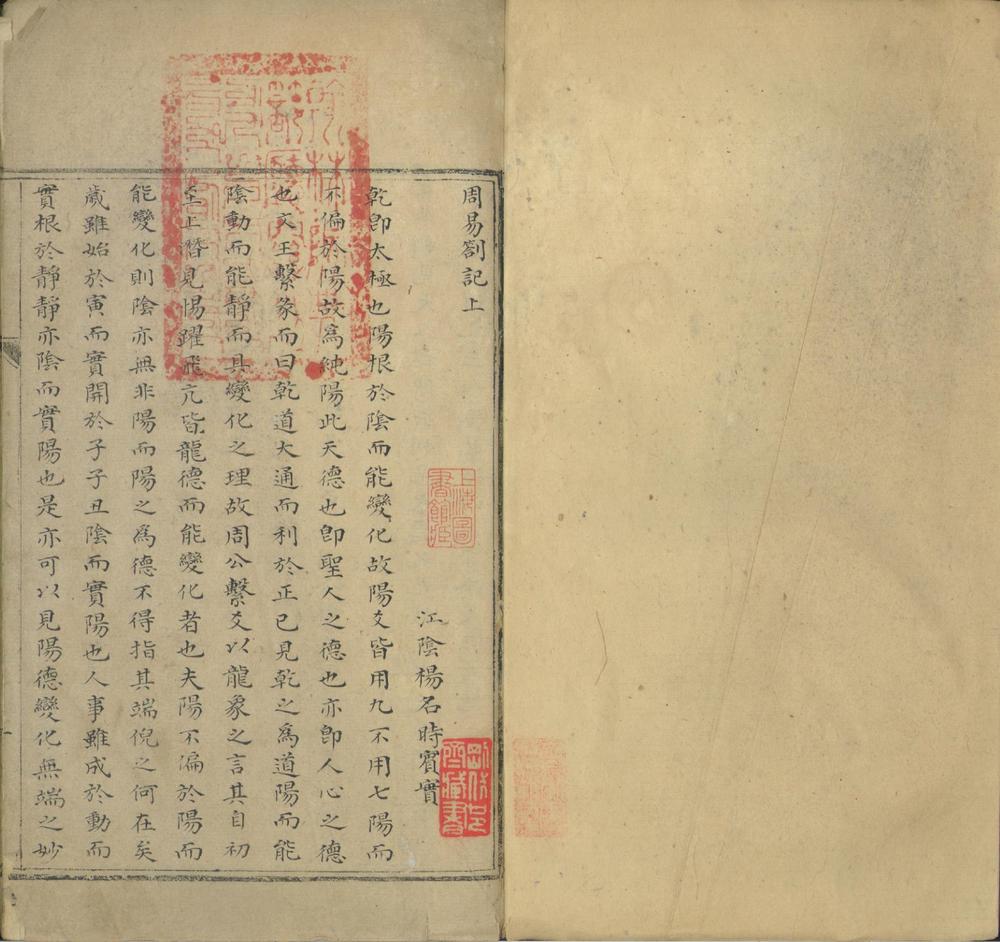 周易劄記上
江陰楊名時賓實
乾即太極也陽根於陰而能變化故陽爻皆用九不用七陽而
不偏於陽故為純陽此天德也即聖人之德也亦即人心之德
也文王繫彖而曰乾道大通而利於正已見乾之為道陽而能
陰動而能靜而具變化之理故周公繫爻以龍象之言其自初
至上潛見惕躍飛亢皆龍德而能變化者也夫陽不偏於陽而
能變化則陰亦無非陽而陽之為德不得指其端倪之何在矣
歲雖始於寅而實開於子子丑陰而實陽也人事雖成於動而
實根於靜靜亦陰而實陽也是亦可以見陽德變化無端之妙
上海圖
書館藏
翰林院印